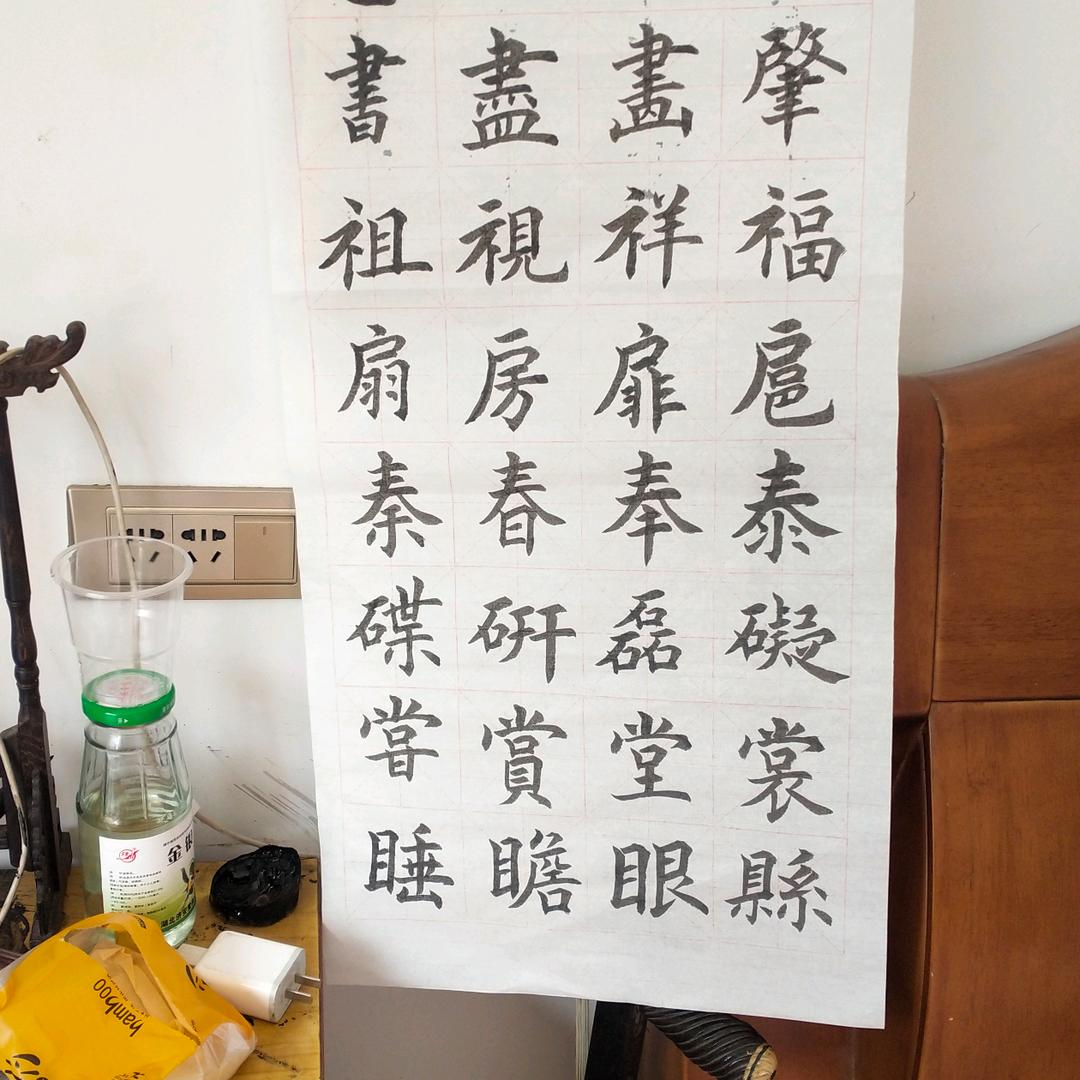 書盡畫肇
祖視祥福
扇房扉扈
秦春奉泰
碟研磊礙
嘗賞堂裳
睡瞻眼縣
金銀
湖北
bamboo